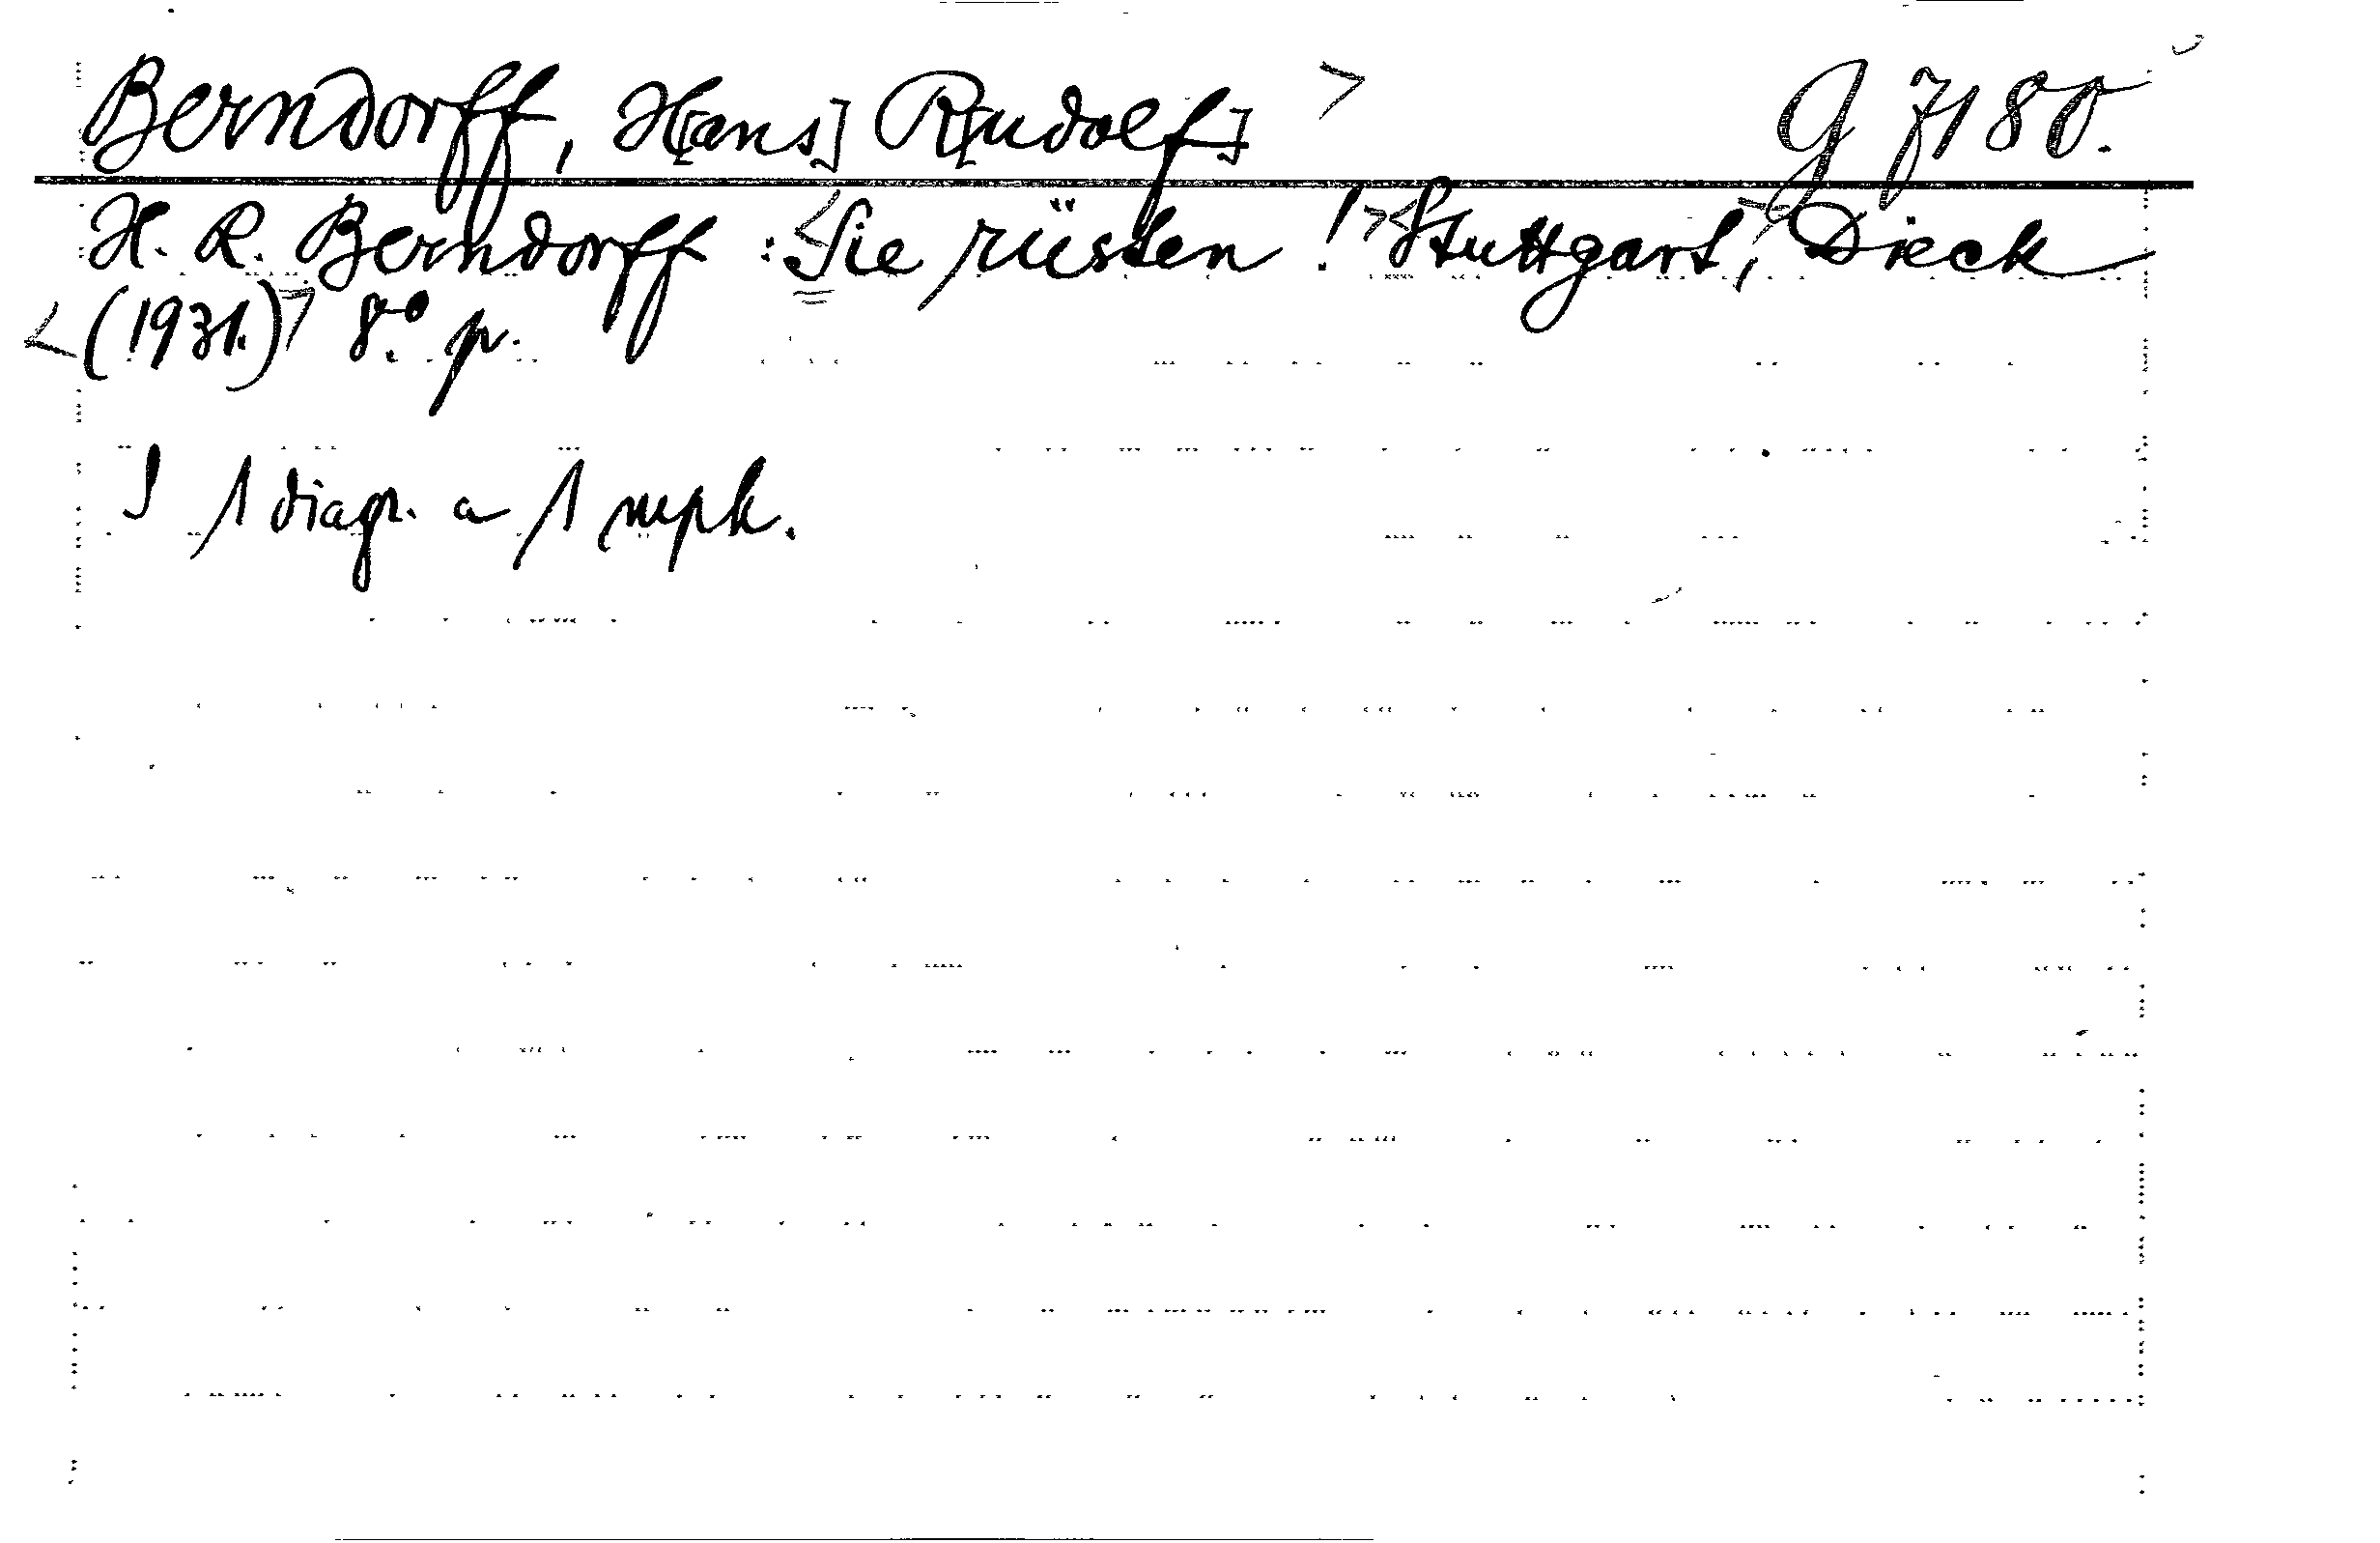 Berndorff, H[ans] R[udolf] > G 7180.
H. R. Berndorff : <Sie rüsten! >< Stuttgart, > Dieck
<(1931.)> 8.° p.
S 1 diagr. a 1 mpk.